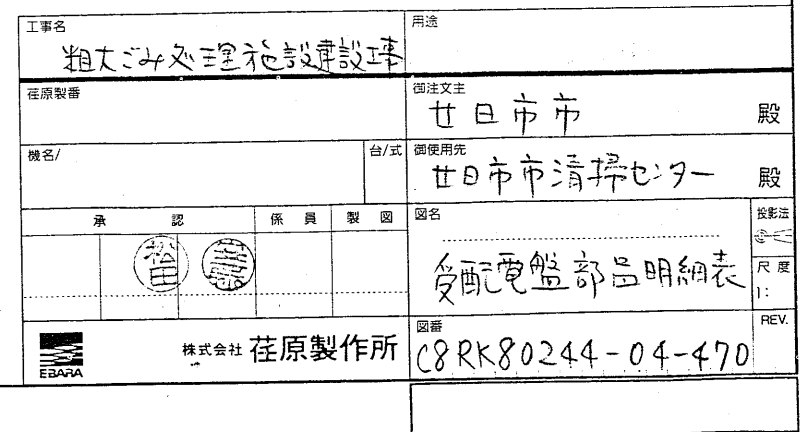 工事名
粗大ごみ処理施設建設工事
用途
荏原製番
御注文主
廿日市市 殿
機名/
台/式
御使用先
廿日市市清掃センター 殿
承認
係員
製図
図名
投影法
松田
受配電盤部品明細表
尺度
1:
EBARA
株式会社 荏原製作所
図番
C8RK80244-04-470
REV.